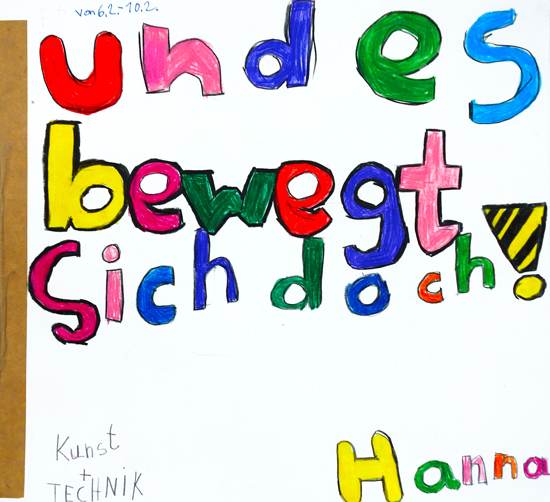 von 6.2.-10.2.
und es
bewegt
Sich doch!
Kunst
+
TECHNIK
Hanna